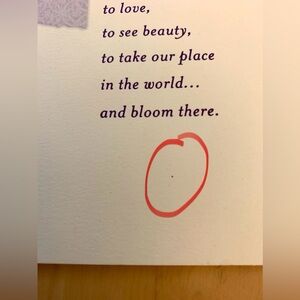 to love,
to see beauty,
to take our place
in the world...
and bloom there.